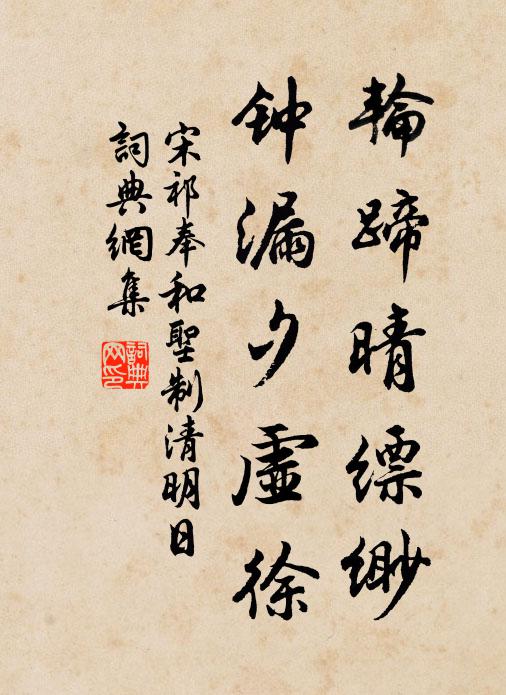 輪蹄晴縹緲
钟漏夕虛徐
宋祁奉和聖制清明日
詞典網集
詞典网印